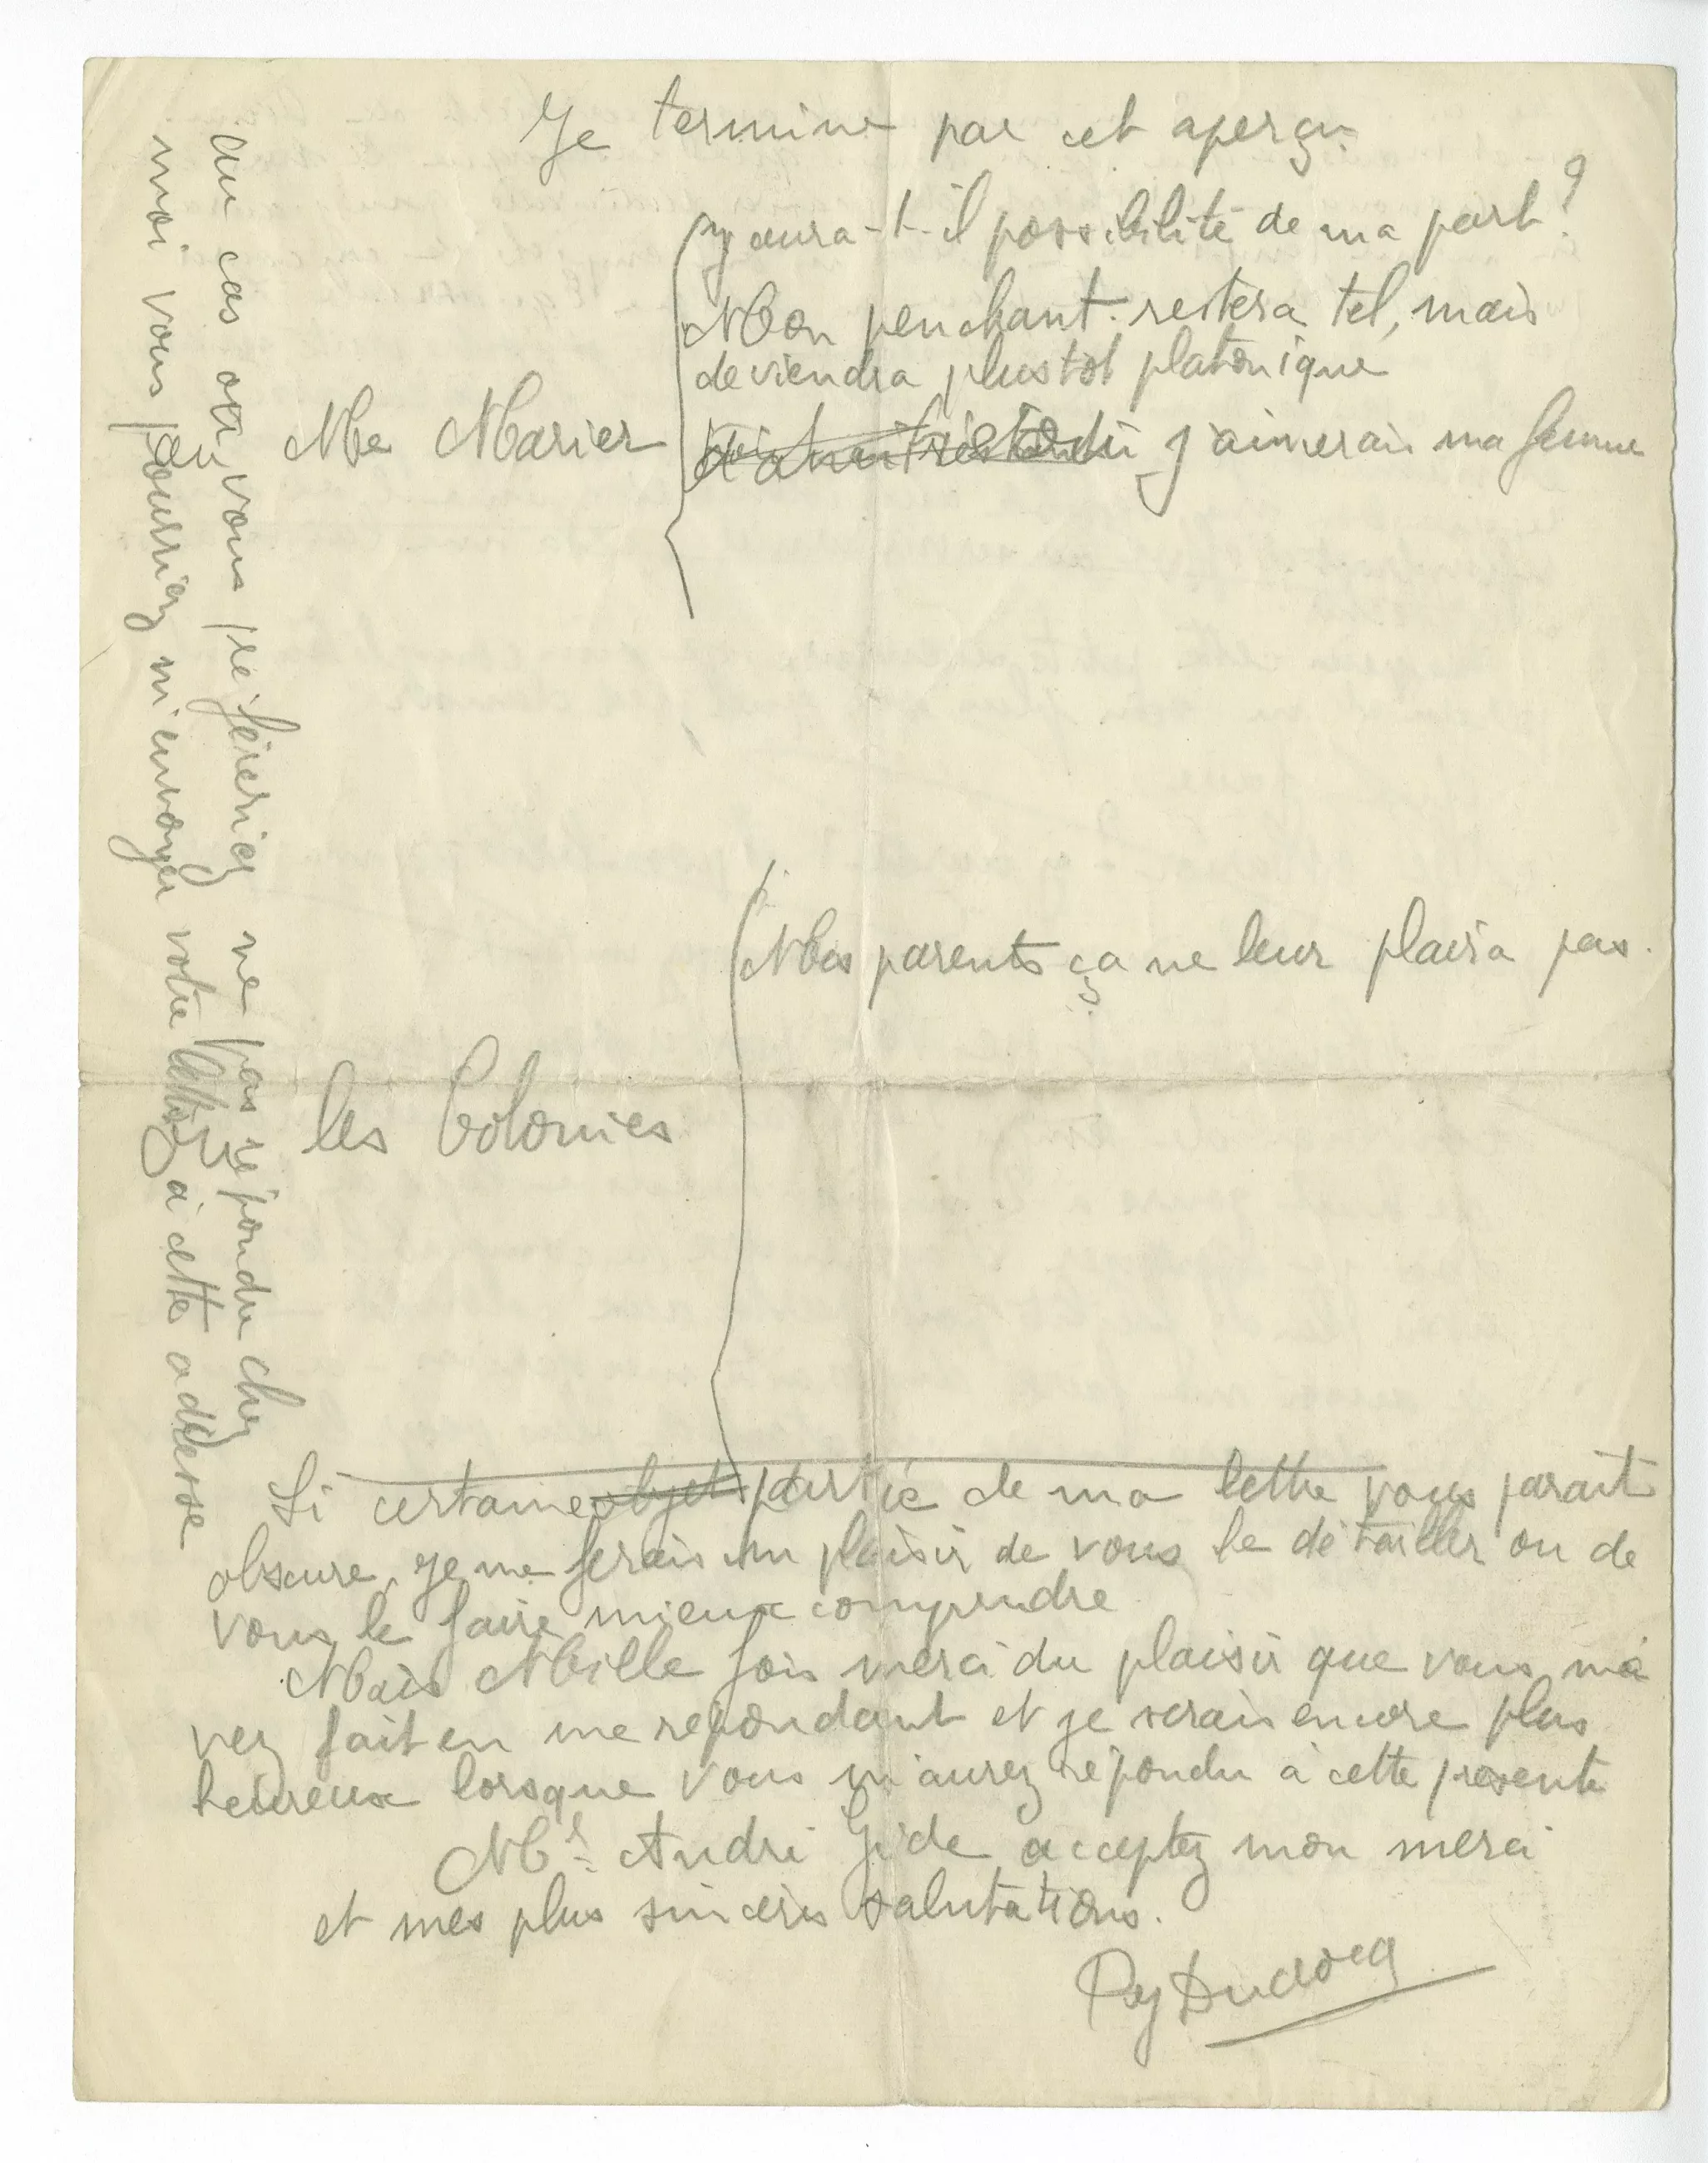 Je termine par cet aperçu
y aura-t-il possibilité de ma part ?
Mon penchant restera tel, mais
deviendra plustôt platonique
ou Me Marier
j'aimerais ma femme
Mes parents ça ne leur plaira pas.
les Colonies
Si certaine objet partie de ma lettre vous parait
obscure, je me ferais un plaisir de vous le détailler ou de
vous le faire mieux comprendre
Mais Mille fois merci du plaisir que vous m'a
vez fait en me repondant et je serais encore plus
heureux lorsque vous m'aurez répondu à cette presente
Mr André Gide acceptez mon merci
et mes plus sincères salutations.
au cas où vous préfèreriez ne pas répondre chez
moi vous pourriez m'envoyer votre à cette adresse